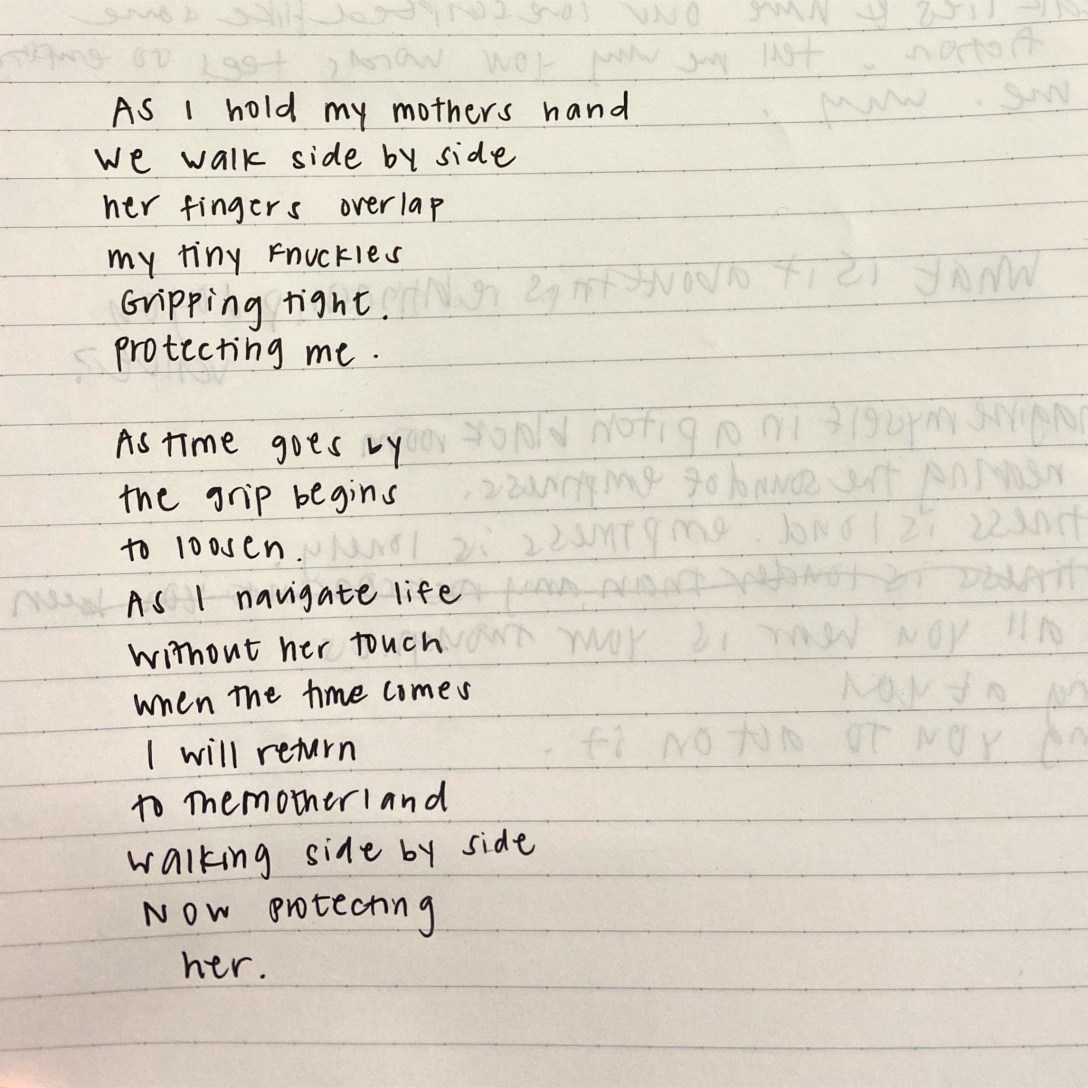 As I hold my mothers hand
We walk side by side
her fingers overlap
my tiny knuckles
Gripping tight.
protecting me.
As time goes by
the grip begins
to loosen.
As I navigate life
without her touch
when the time comes
I will return
to the motherland
walking side by side
Now protecting
her.